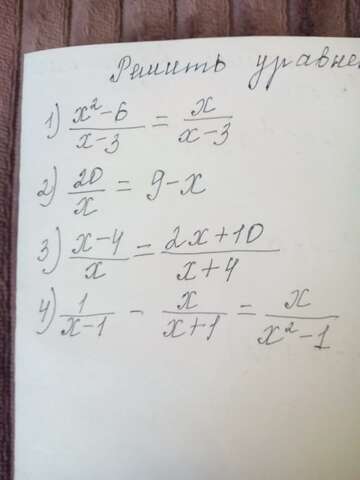 Решить уравне
1) x²-6/x-3 = x/x-3
2) 20/x = 9-x
3) x-4/x = 2x+10/x+4
4) 1/x-1 - x/x+1 = x/x²-1